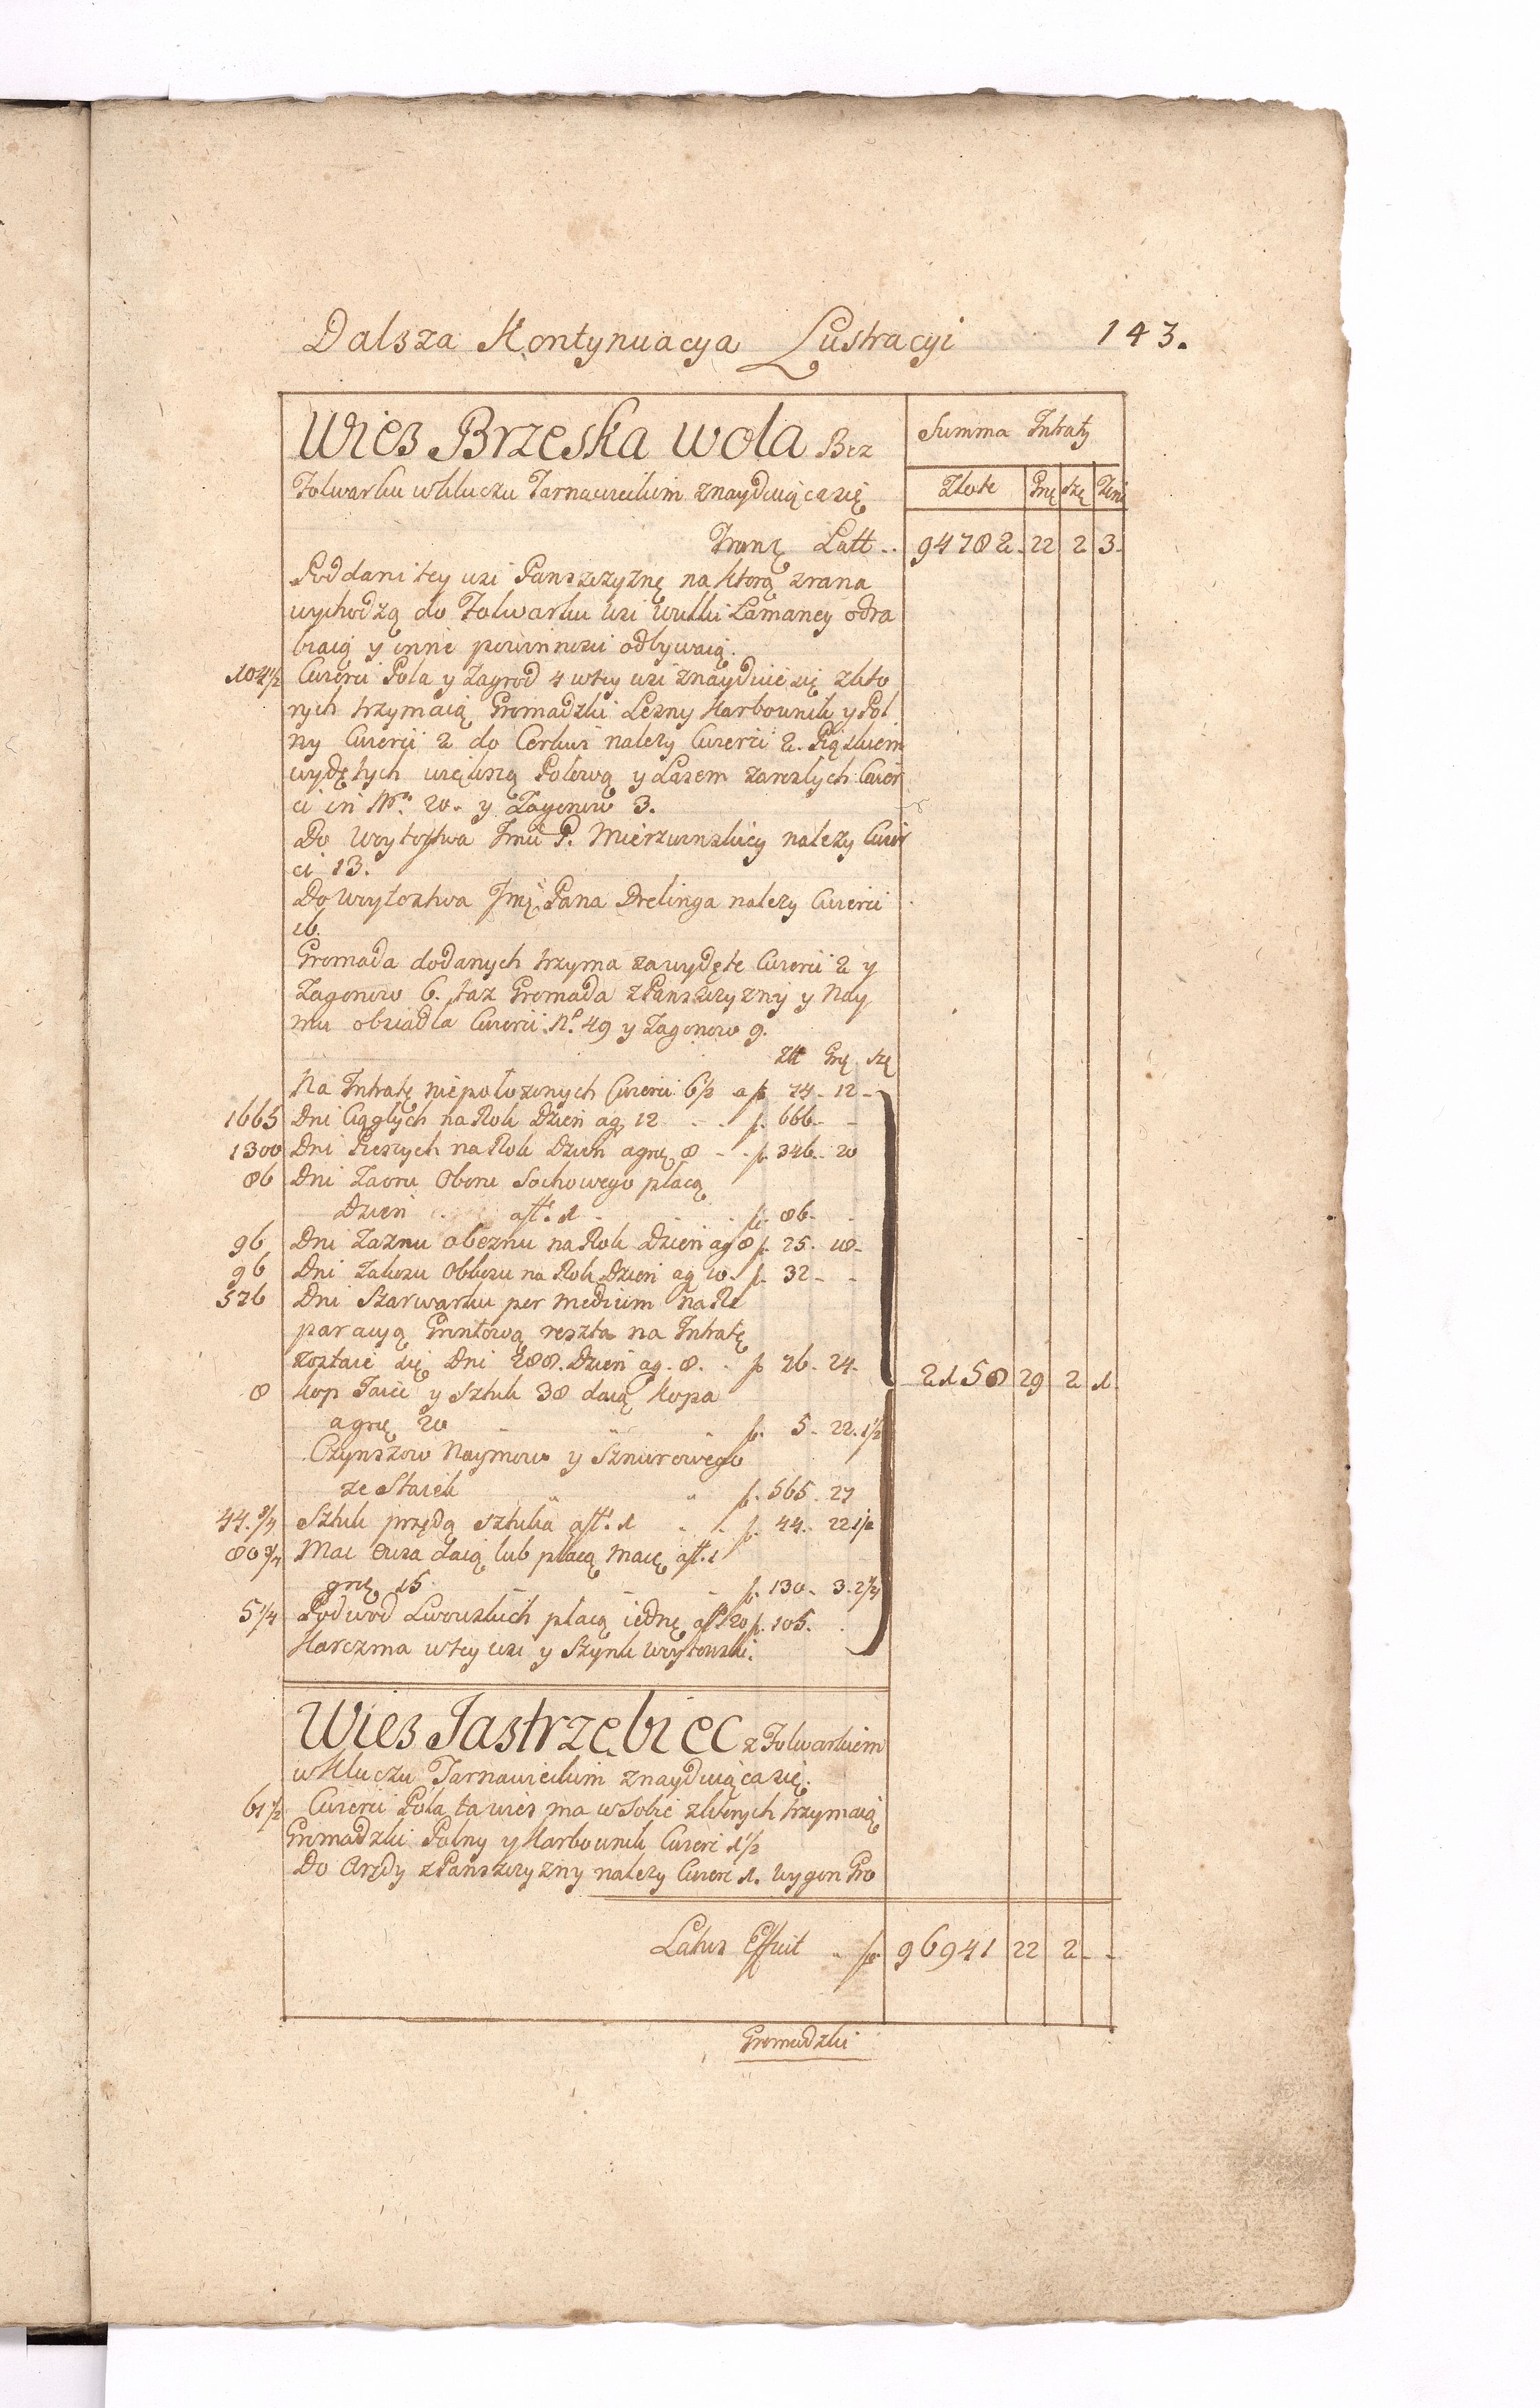 Dalsza Kontynuacya Lustracyi 143.
Wies Brzeska wola Bez
Summa Intraty
Folwarku w Kluczu Tarnawieckim znayduiąca się
Złote Grę szę
Tranę Latt .. 94782. 22 2 3.
Poddani tey wsi Panszczyznę na ktorą zrana
wychodzą do Folwarku wsi Wulki Łamaney odra
biaią y inne powinnosci odbywaią.
104½ Cwierci Pola y Zagrod 4 wtey wsi znayduie się zkto
rych trzymaią Gromadzki Lezny Karbownik y Pol
ny Cwierci 2 do Cerkwi należy Cwierci 2. Piąskiem
wydętych większą Połową y Lasem zarosłych Cwier
ci in Nro. 20. y Zagonow 3.
Do Wuytostwa Jmci P. Mierzwinskiey nalezy Cwier
ci 13.
Do Wuytostwa Jmę Pana Drelinga nalezy Cwierci
16.
Gromada dodanych trzyma zawydęte Cwierci 2 y
Zagonow 6. taz Gromada z Panszczyzny y Nay
mu obsiadla Cwierci No. 49 y Zagonow 9.
Złt Grę szę
Na Intratę niepołozonych Cwierci 6½ a f. 74. 12.
1665 Dni Ciągłych na Rok Dzień ag 12 f. 666.
1300 Dni Pieszych na Rok Dzień agrę 8 f. 346. 20
86 Dni Zaoru Oboru Sochowego płacą
Dzień afl. 1 f. 86.
96 Dni Zaznu obeznu na Rok Dzień ag 8 f. 25. 18.
96 Dni Zakosu Obkosu na Rok Dzień ag 10. f. 32.
576 Dni Szarwarku per medium na Re
paracyą Gruntową reszta na Intratę
zostaie się Dni 288. Dzień ag. 8. f. 76. 24.
2158 29 2 1.
8 Kop Jaiec y sztuk 38 daią kopa
agrę 20 f. 5. 22. 1½
Czynszow Naymow y Sznurowego
ze Staiek f. 565. 27
44.¾ Sztuk przędą sztuka afl. 1 f. 44. 22 1/2
80¾ Mac Owsa daią lub płacą Macę afl. 1
grę 15 f. 130. 3. 2¼
5¼ Podwod Lwowskich płacą iednę afl 20 f. 105.
Karczma wtey wsi y Szynk Wuytowski.
Wies Jastrzębiec z Folwarkiem
w Kluczu Tarnawieckim znayduiąca się.
61½ Cwierci Pola ta wies ma w Sobie zktorych trzymaią
Gromadzki Polny y Karbownik Cwierc 1½
Do Arędy z Panszczyzny nalezy Cwierc 1. Wygon Gro
Latus Efficit f. 96941 22 2 - -
Gromadzki